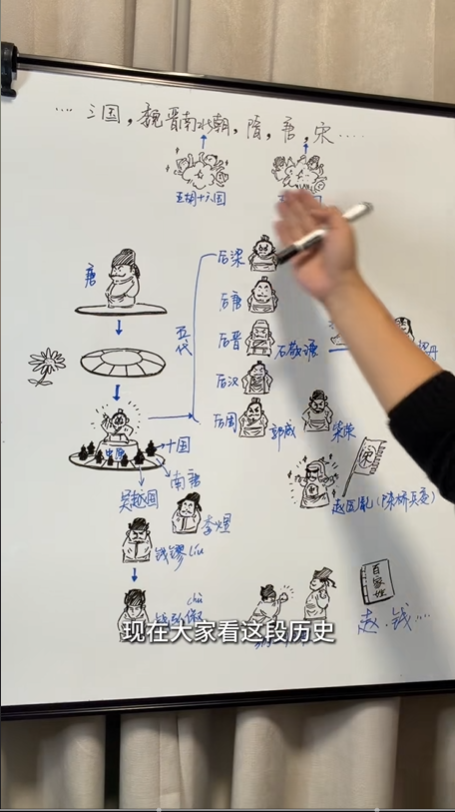 …三国，魏晋南北朝，隋，唐，宋……
五胡十六国
唐
五代
后梁
后唐
后晋
石敬瑭
后汉
后周
郭威
柴荣
中原
十国
南唐
李煜
吴越国
钱镠liu
宋
赵匡胤(陈桥兵变)
chù
俶
百家姓
赵.钱…
现在大家看这段历史